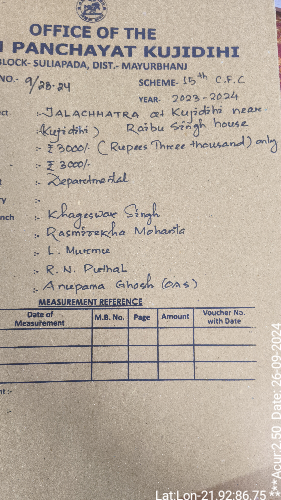 OFFICE OF THE
PANCHAYAT KUJIDIHI
BLOCK- SULIAPADA, DIST.- MAYURBHANJ
NO.- 9/23-24
SCHEME- 15th C.F.C
YEAR- 2023-2024
:- JALACHHATRA at Kujidihi near
(Kujidihi) Raibu Singh house
:- ₹ 3000/- (Rupees Three thousand) only
:- ₹ 3000/-
:- Departmental
:-
:- Khageswar Singh
:- Rasmirekha Mohanta
:- L. Murmu
:- R. N.
:- Anupama Ghosh (OAS)
MEASUREMENT REFERENCE
Date of Measurement M.B. No. Page Amount Voucher No. with Date
Lat:Lon-21.92:86.75
***Acur:2.50 Date: 26-09-2024